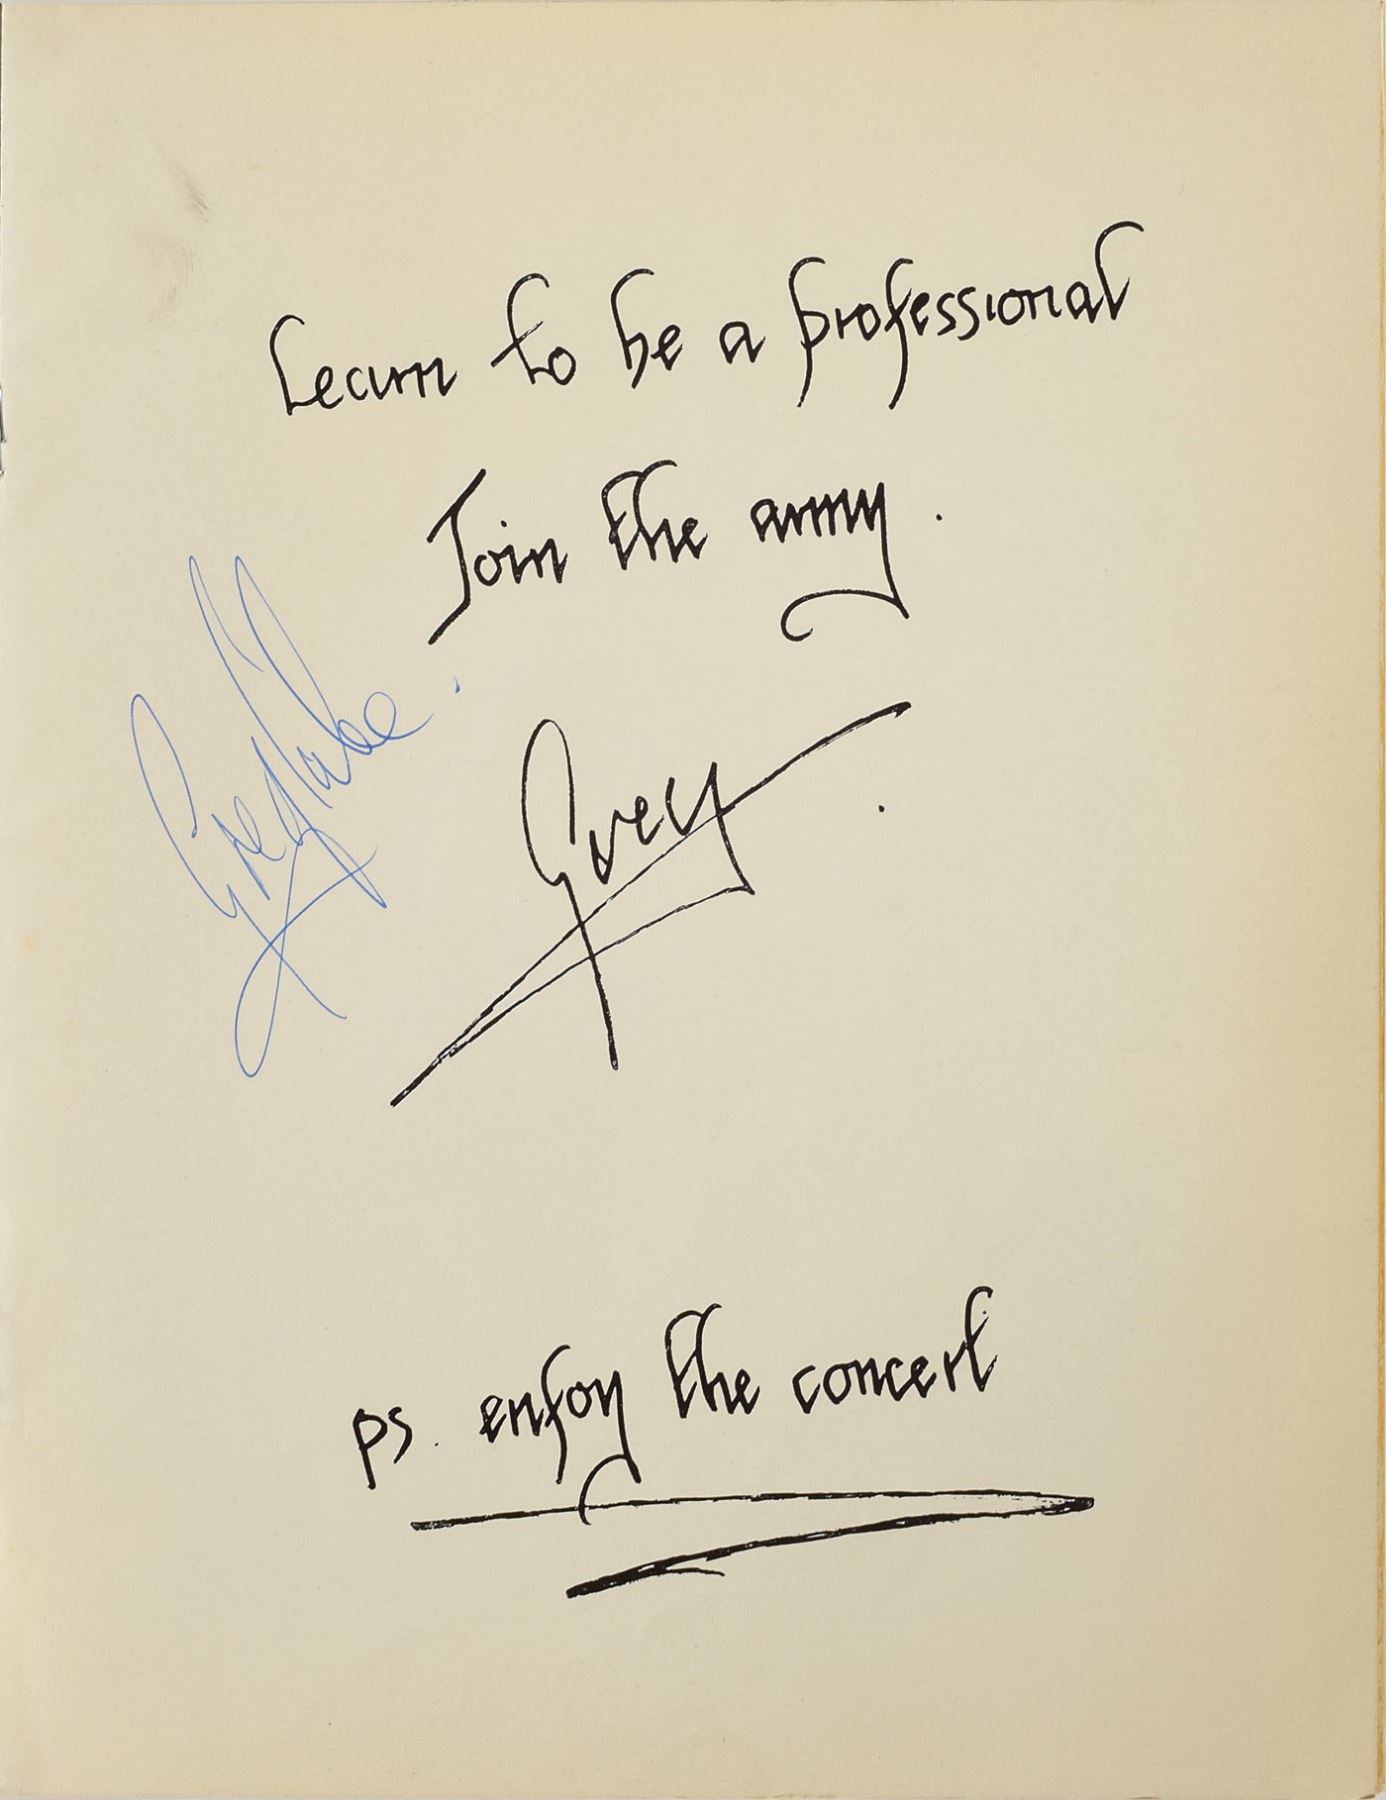 Learn to be a professional
Join the army.
Greg Lake.
Greg.
ps. enjoy the concert